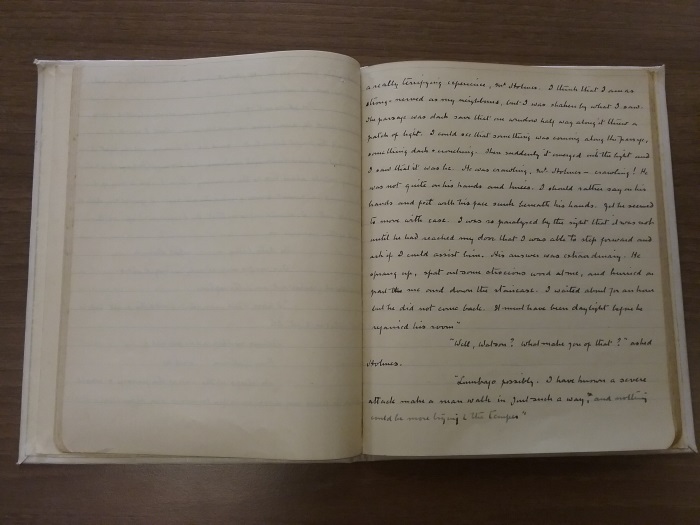 a really terrifying experience, Mr Holmes. I think that I am as
strong-nerved as my neighbours, but I was shaken by what I saw.
The passage was dark save that one window half way along it threw a
patch of light. I could see that something was coming along the passage,
something dark & crouching. Then suddenly it emerged into the light and
I saw that it was he. He was crawling, Mr. Holmes - crawling! He
was not quite on his hands and knees. I should rather say on his
hands and feet with his face sunk between his hands. Yet he seemed
to move with ease. I was so paralysed by the sight that it was not
until he had reached my door that I was able to step forward and
ask if I could assist him. His answer was extraordinary. He
sprang up, spat out some atrocious word at me, and hurried on
past me and down the staircase. I waited about for an hour
but he did not come back. It must have been daylight before he
regained his room"
"Well, Watson? What make you of that?" asked
Holmes.
"Lumbago possibly. I have known a severe
attack make a man walk in just such a way, and nothing
could be more trying to the temper"